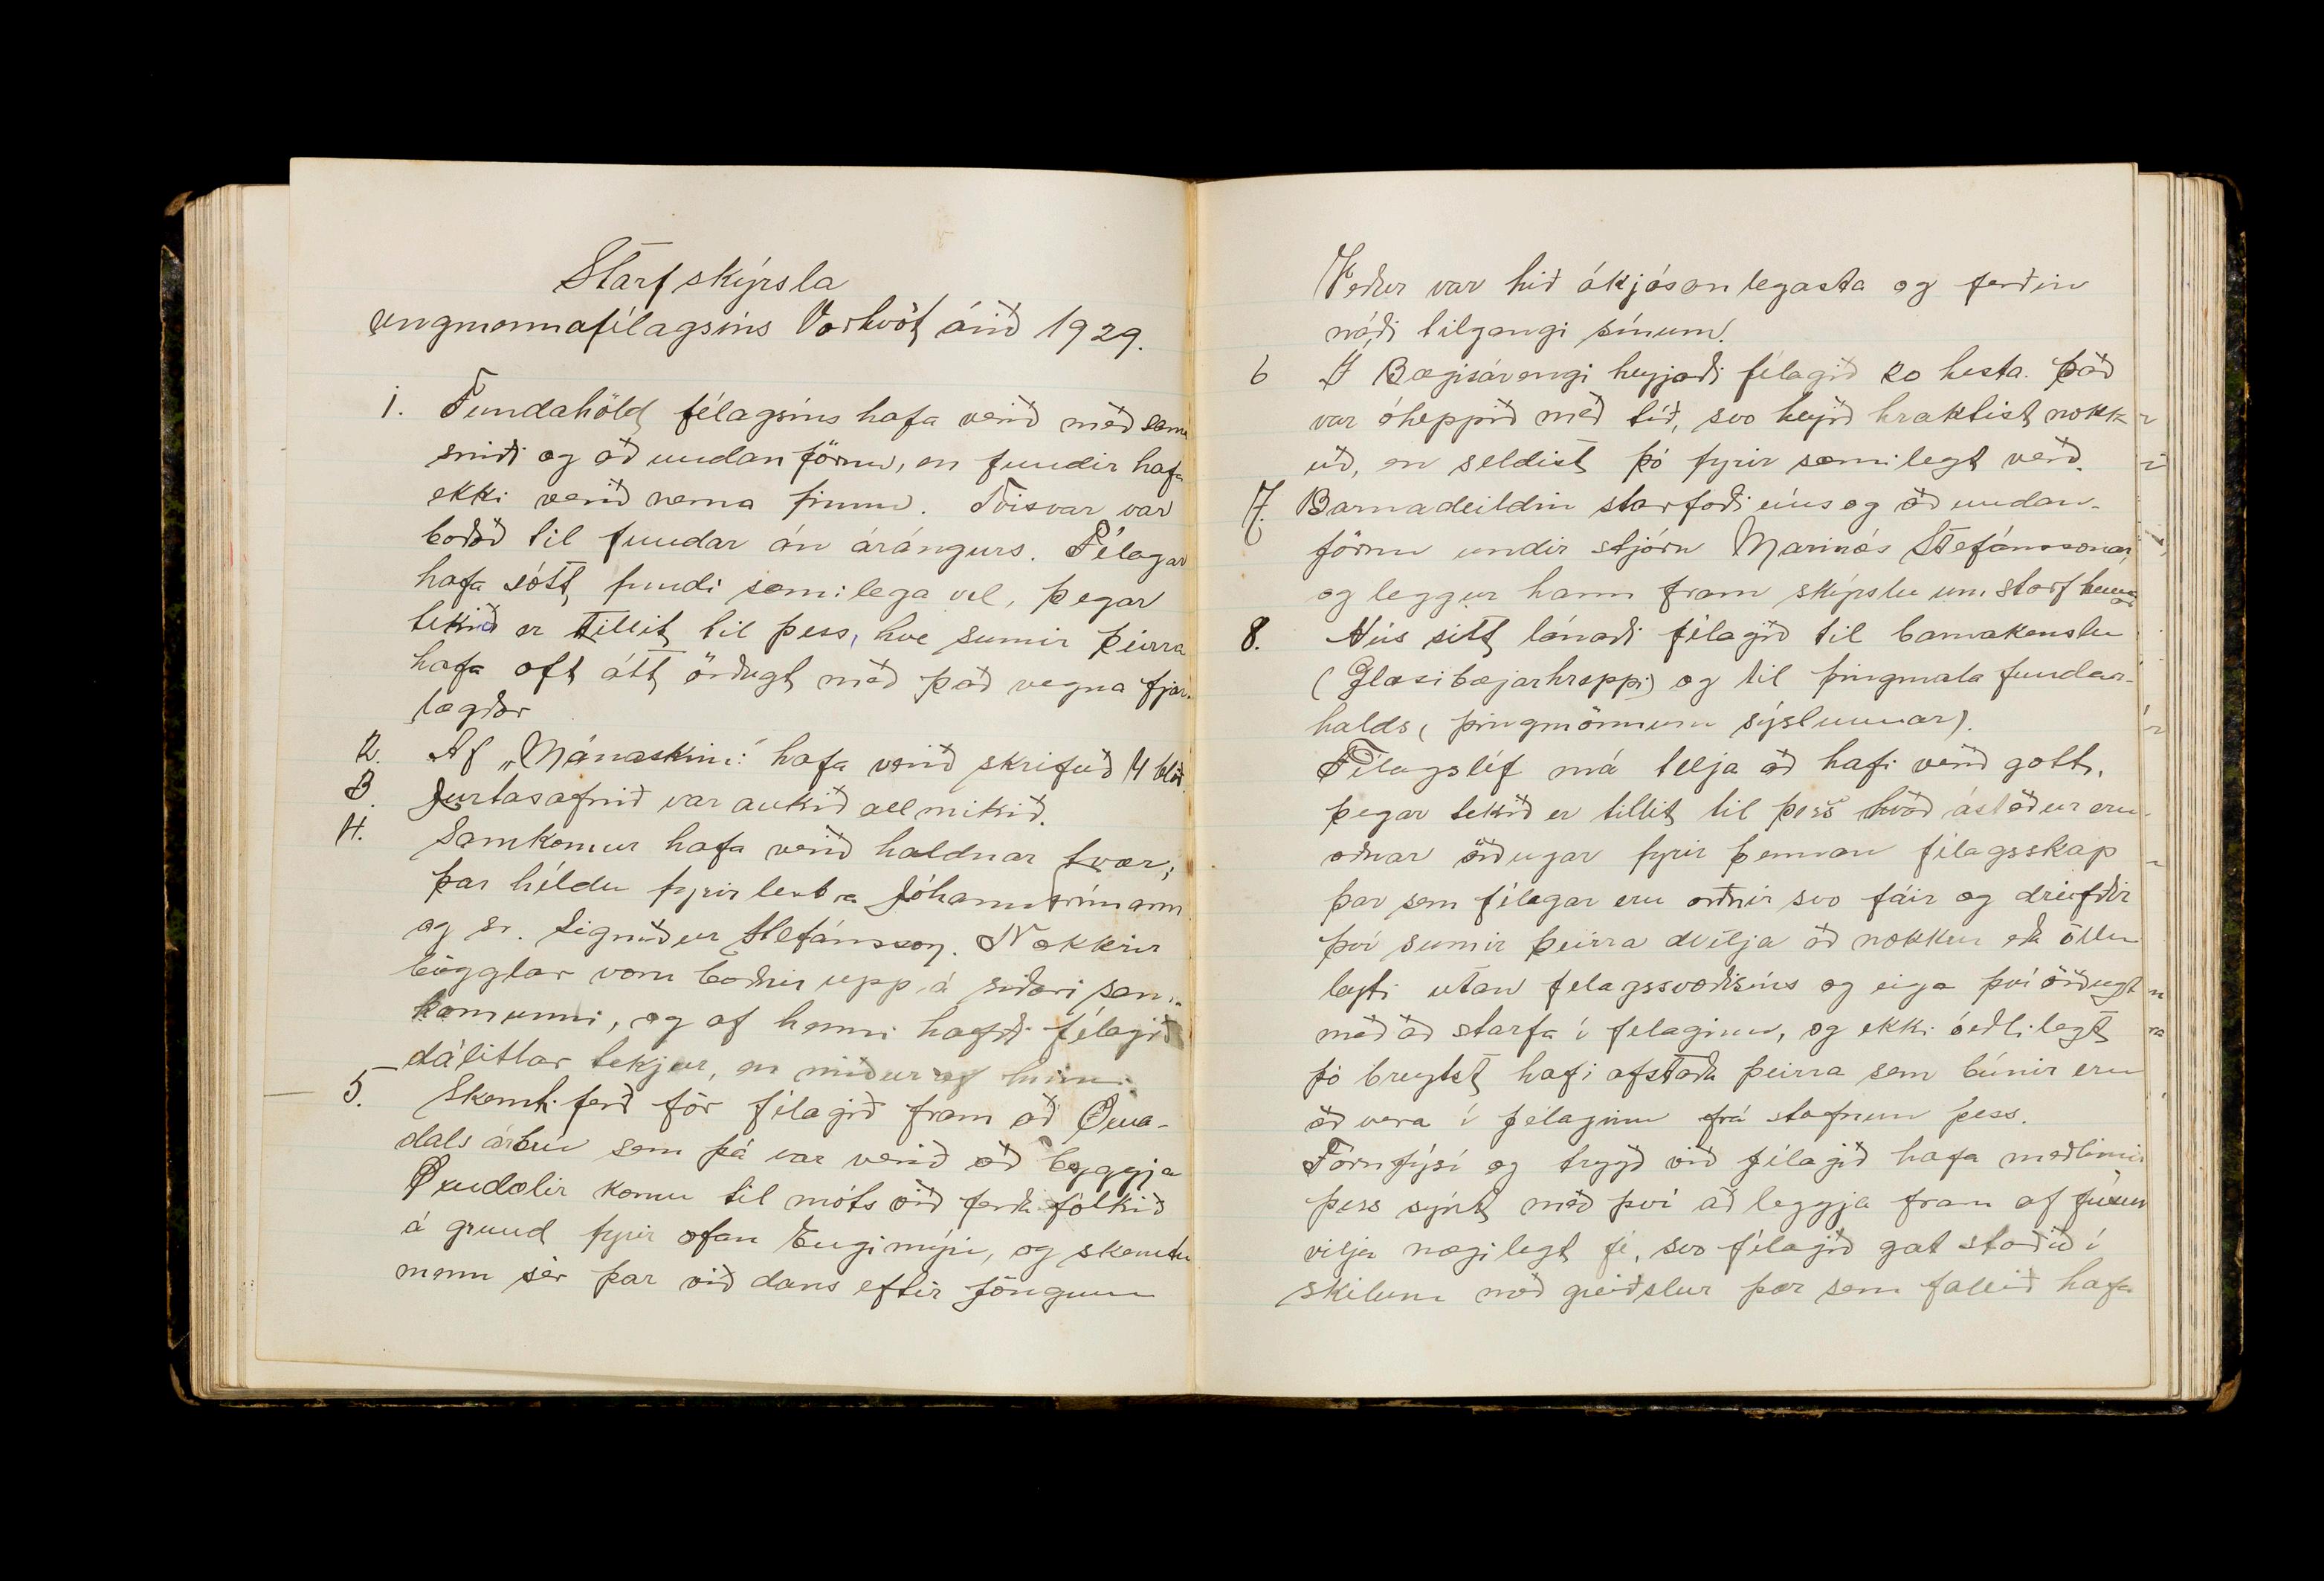 Starfskýrsla
ungmennafélagsins Vorhvöt árið 1929.
1. Fundahöld félagsins hafa verið með sama
sniði og að undanförnu, en fundir hafa
ekki verið nema fimm. Tvisvar var
boðað til fundar án árángurs. Félagar
hafa sótt fundi sæmilega vel, þegar
tekið er tillit til þess, hve sumir þeirra
hafa oft átt örðugt með það vegna fjar-
lægðar
2. Af „Mánaskini" hafa verið skrifuð 4 blöð
3. Jurtasafnið var aukið allmikið.
4. Samkomur hafa verið haldnar tvær;
þar héldu fyrirlestra Jóhann Frímann
og sr. Sigurður Stefánsson. Nokkrir
bögglar voru boðnir upp á síðari sam-
komunni, og af henni hafði félagið
dálitlar tekjur, en miður af hinni.
5. Skemtiferð fór félagið fram að Öxna-
dalsárbrú sem þá var verið að byggja
Öxndælir komu til móts við ferðafólkið
á grund fyrir ofan Engimýri, og skemtu
menn sér þar við dans eftir föngum
Veður var hið ákjósanlegasta og ferðin
náði tilgangi sínum.
6 Í Bægisárengi heyjaði félagið 20 hesta. Það
var óheppið með tíð, svo heyið hraktist nokk-
uð, en seldist þó fyrir sæmilegt verð.
7. Barnadeildin starfaði eins og að undan-
förnu undir stjórn Marinós Stefánssonar,
og leggur hann fram skýrslu um starf hennar
8. Hús sitt lánaði félagið til barnakenslu
(Glæsibæjarhreppi) og til þingmálafundar-
halds (þingmönnum sýslunnar).
Félagslíf má telja að hafi verið gott,
þegar tekið er tillit til þess hvað ástæður eru
orðnar örðugar fyrir þennan félagsskap
þar sem félagar eru orðnir svo fáir og dreifðir
því sumir þeirra dvelja að nokkru eða öllu
leyti utan félagssvæðisins og eiga því örðugt
með að starfa í félaginu, og ekki óeðlilegt
þó breytst hafi afstaða þeirra sem búnir eru
að vera í félaginu frá stofnun þess.
Fórnfýsi og trygð við félagið hafa meðlimir
þess sýnt með því að leggja fram af fúsum
vilja nægilegt fé, svo félagið gat staðið í
skilum með greiðslur þær sem fallið hafa